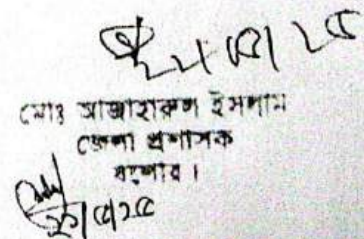 ২২/৫/২৫
মোঃ আজাহারুল ইসলাম
জেলা প্রশাসক
যশোর।
২২/৫/২৫